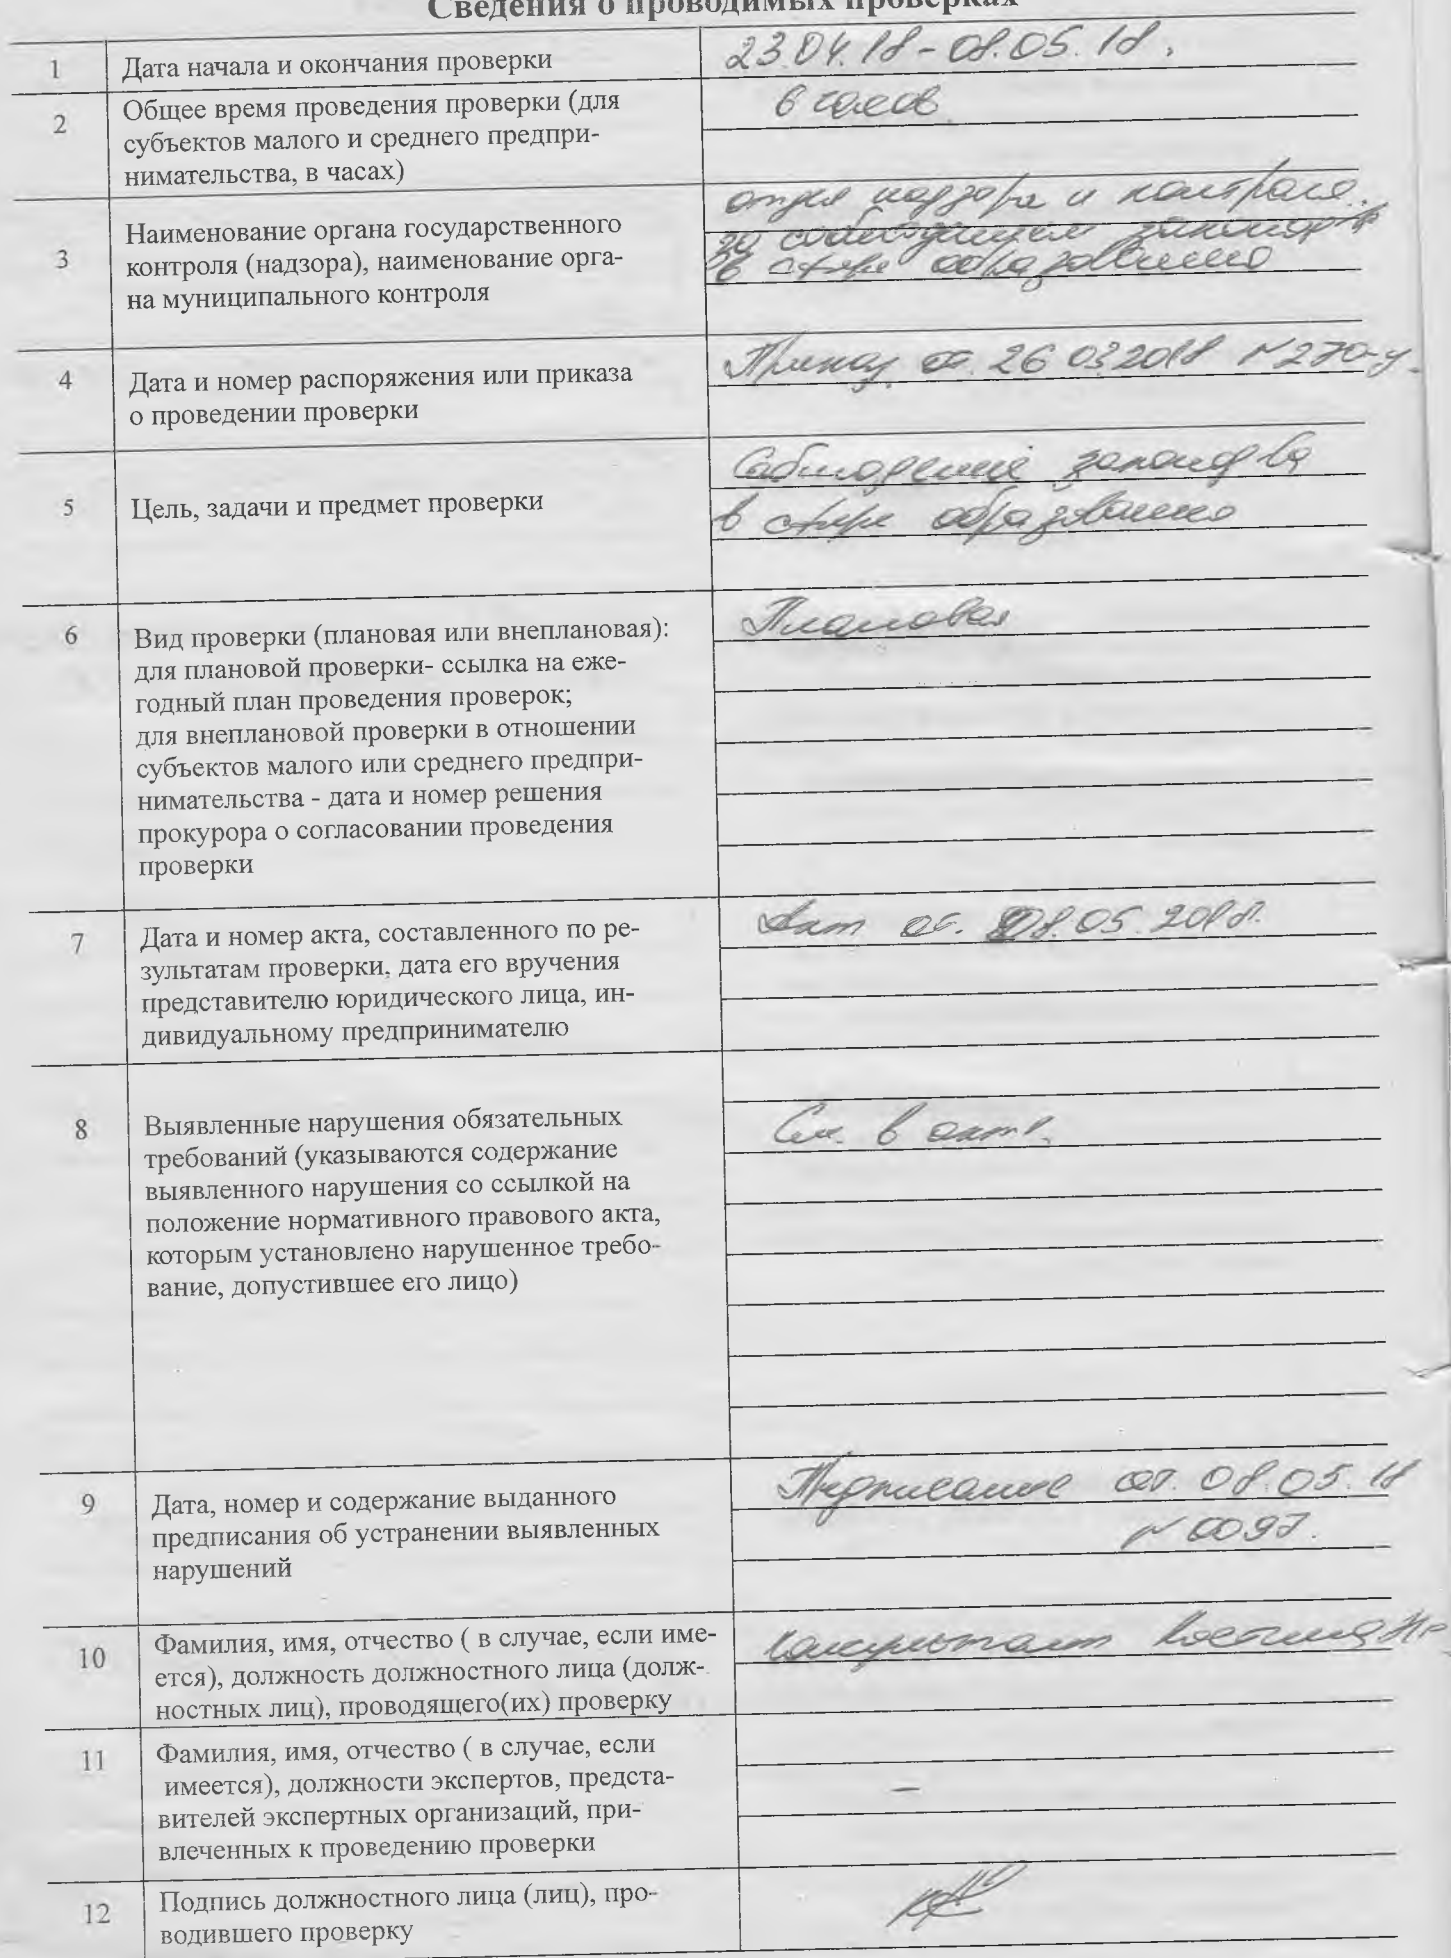 Сведения о проводимых проверках
1
Дата начала и окончания проверки
23.04.18 - 08.05.18.
2
Общее время проведения проверки (для
субъектов малого и среднего предпри-
нимательства, в часах)
6 часов
3
Наименование органа государственного
контроля (надзора), наименование орга-
на муниципального контроля
отдел надзора и контроля
за соблюдением законод-ва
в сфере образования
4
Дата и номер распоряжения или приказа
о проведении проверки
Приказ от 26 03.2018 №270-у.
5
Цель, задачи и предмет проверки
Соблюдение законод-ва
в сфере образования
6
Вид проверки (плановая или внеплановая):
для плановой проверки- ссылка на еже-
годный план проведения проверок;
для внеплановой проверки в отношении
субъектов малого или среднего предпри-
нимательства - дата и номер решения
прокурора о согласовании проведения
проверки
Плановая
7
Дата и номер акта, составленного по ре-
зультатам проверки, дата его вручения
представителю юридического лица, ин-
дивидуальному предпринимателю
Акт от. 08.05.2018.
8
Выявленные нарушения обязательных
требований (указываются содержание
выявленного нарушения со ссылкой на
положение нормативного правового акта,
которым установлено нарушенное требо-
вание, допустившее его лицо)
См. в акте.
9
Дата, номер и содержание выданного
предписания об устранении выявленных
нарушений
Предписание от. 08.05.18
№ 0097.
10
Фамилия, имя, отчество ( в случае, если име-
ется), должность должностного лица (долж-
ностных лиц), проводящего(их) проверку
консультант
11
Фамилия, имя, отчество ( в случае, если
имеется), должности экспертов, предста-
вителей экспертных организаций, при-
влеченных к проведению проверки
–
12
Подпись должностного лица (лиц), про-
водившего проверку